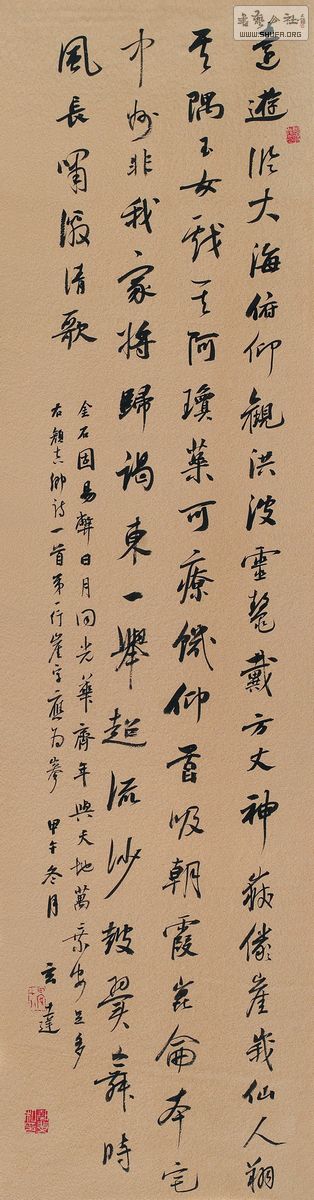 遠遊臨大海俯仰觀洪波靈鼇戴方丈神嶽儼崖峩仙人翔
其隅玉女戲其阿瓊蘂可療饑仰首吸朝霞崑崙本宅
中州非我家將歸謁東一舉超流沙鼓翼舞時
風長嘯激清歌
金石固易弊日月同光華齊年與天地萬乘安足多
右顏真卿詩一首第一行崖字應為嵳 甲午冬月 玄達
WWW.SHUFA.ORG